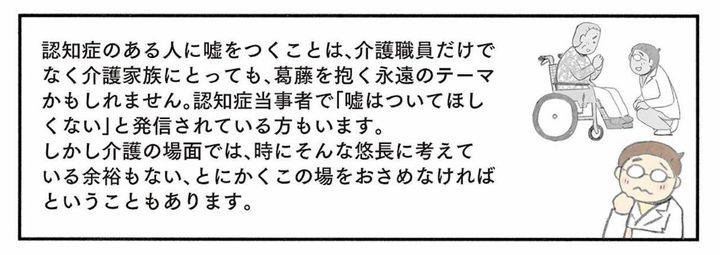 認知症のある人に嘘をつくことは、介護職員だけで
なく介護家族にとっても、葛藤を抱く永遠のテーマ
かもしれません。認知症当事者で「嘘はついてほし
くない」と発信されている方もいます。
しかし介護の場面では、時にそんな悠長に考えて
いる余裕もない、とにかくこの場をおさめなければ
ということもあります。